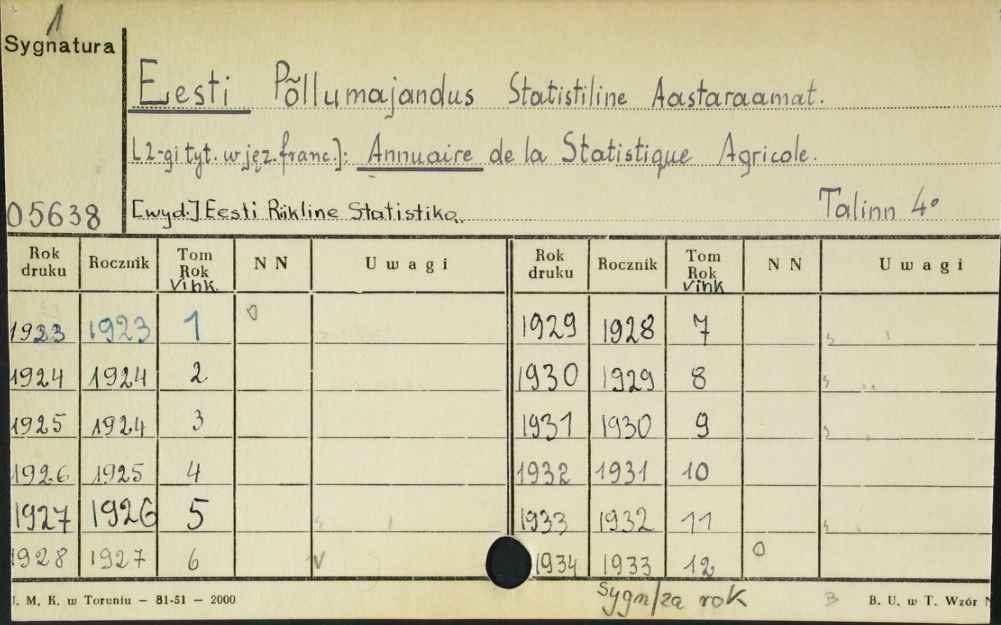 1
Sygnatura
Eesti Põllumajandus Statistiline Aastaraamat.
[2-gi tyt. w jęz. franc.]: Annuaire de la Statistique Agricole.
05638 [wyd.] Eesti Riikline Statistika. Talinn 4°
Rok druku Rocznik Tom Rok Vihk. NN Uwagi Rok druku Rocznik Tom Rok Vihk NN Uwagi
1923 1923 1 0 1929 1928 7
1924 1924 2 1930 1929 8
1925 1924 3 1931 1930 9
1926 1925 4 1932 1931 10
1927 1926 5 1933 1932 11
1928 1927 6 V 1934 1933 12 0
J. M. K. w Toruniu – 81-51 – 2000 Sygn/za rok B B. U. w T. Wzór